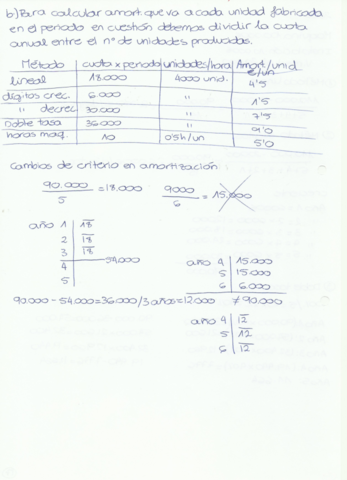 b) Para calcular amort. que va a cada unidad fabricada
en el periodo en cuestión debemos dividir la cuota
anual entre el nº de unidades producidas.
Método cuota x periodo unidades/hora Amort/unid
lineal 18.000 4000 unid. €/un 4'5
dígitos crec. 6.000 " 1'5
" decrec. 30.000 " 7'5
Doble tasa 36.000 " 9'0
horas maq. 10 0'5h/un 5'0
Cambios de criterio en amortización:
90.000 / 5 = 18.000 9000 / 6 = 15.000
año 1 18
2 18
3 18
4 54.000
5
año 4 15.000
5 15.000
6 6.000
90.000 - 54.000 = 36.000 / 3 años = 12.000 ≠ 90.000
año 4 12
5 12
6 12